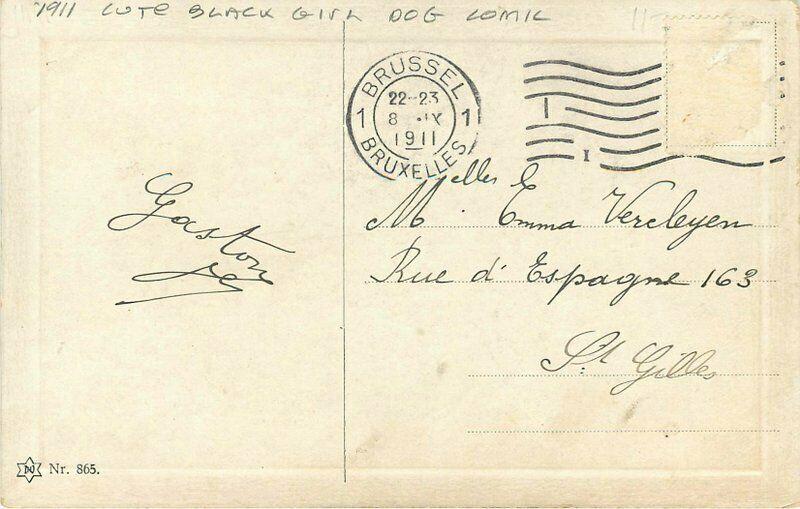 1911 CUTE BLACK GIRL DOG COMIC
BRUSSEL
22-23
1 8 • IX 1
1911
BRUXELLES
I
I
Melles Emma Vercleyen
Rue d'Espagne 163
St Gilles
Gaston
Nr. 865.